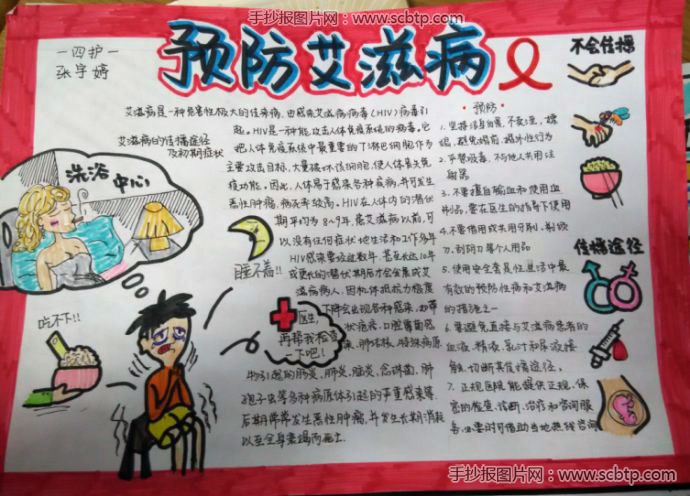 手抄报图片网：www.scbtp.com
预防艾滋病
一四护一
张宇婷
艾滋病的传播途径
及初期症状
洗浴
中心
睡不着!!
吃不下!!
医生，
再帮我检查
下吧!
艾滋病是一种危害性极大的传染病，由感染艾滋病病毒（HIV）病毒引
起。HIV是一种能攻击人体免疫系统的病毒。它
把人体免疫系统中最重要的T淋巴细胞作为
主要攻击目标，大量破坏该细胞，使人体丧失免
疫功能。因此，人体易于感染各种疾病，并可发生
恶性肿瘤，病死率较高。HIV在人体内的潜伏
期平均为8~9年，患艾滋病以前，可
以没有任何症状地生活和工作多年
HIV感染要经过数年、甚至长达10年
或更长的潜伏期后才会发展成艾
滋病病人，因机体抵抗力极度
下降会出现各种感染，如带
状疱疹、口腔霉菌感
染、肺结核、特殊病原
引起的肠炎、肺炎、脑炎、念珠菌、肺
孢子虫等多种病原体引起的严重感染等
后期常常发生恶性肿瘤，并发生长期消耗
以至全身衰竭而死亡
·预防·
1.坚持洁身自爱，不卖淫、嫖
娼，避免婚前、婚外性行为
2.严禁吸毒，不与他人共用注
射器
3.不要擅自输血和使用血
制品，要在医生的指导下使用
4.不要借用或共用牙刷、剃须
刀、刮脸刀等个人用品
5.使用安全套是性生活中最
有效的预防性病和艾滋病
的措施之一
6.要避免直接与艾滋病患者的
血液、精液、乳汁和尿液接
触，切断其传播途径。
7.正规医院能提供正规、保
密的检查、诊断、治疗和咨询服
务，必要时可借助当地热线咨询
不会传播
传播途径
手抄报图片网：www.scbtp.com